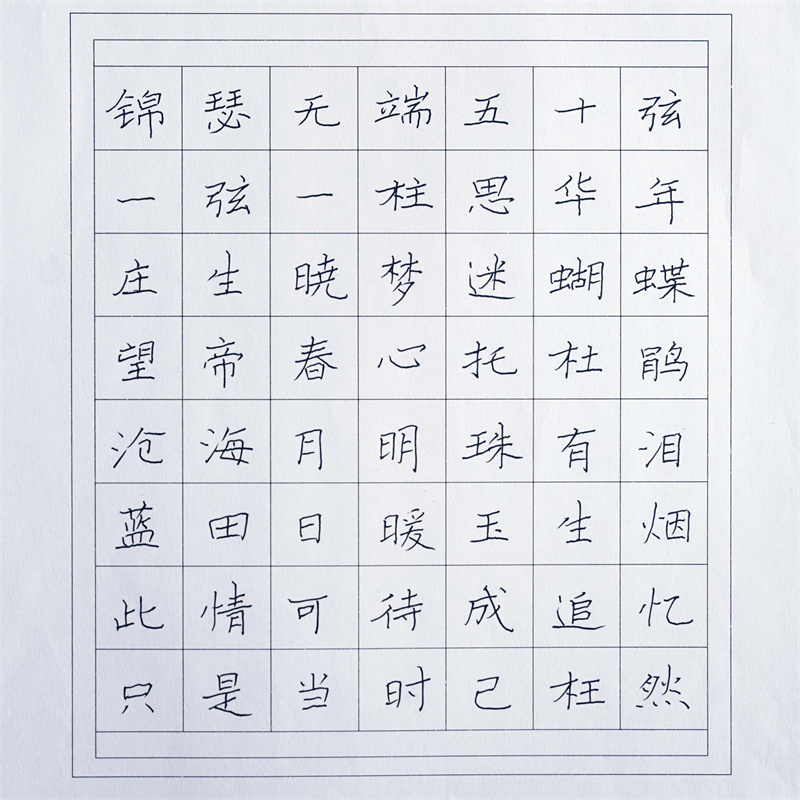 锦瑟无端五十弦
一弦一柱思华年
庄生晓梦迷蝴蝶
望帝春心托杜鹃
沧海月明珠有泪
蓝田日暖玉生烟
此情可待成追忆
只是当时己枉然